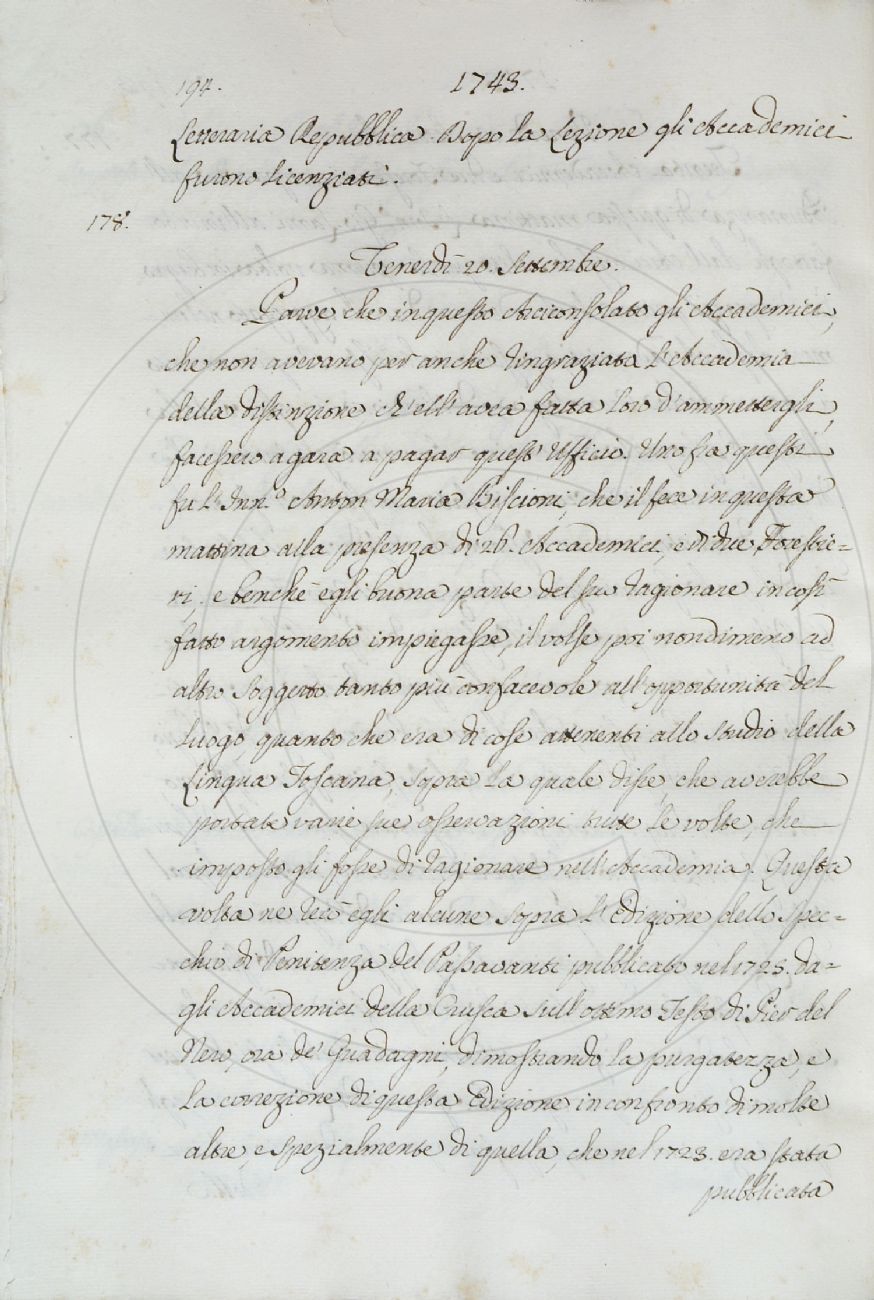 194.
1743.
Letteraria Repubblica. Dopo la Lezione gli Accademici
furono licenziati.
178.
Venerdì 20. Settembre.
Parve, che in questo Arciconsolato gli Accademici,
che non avevano per anche ringraziata l'Accademia
della distinzione ch'ell'avea fatta loro d'ammettergli,
facessero a gara a pagar quest'Ufficio. Uno fra questi
fu l'Inn.º Anton Maria Biscioni, che il fece in questa
mattina alla presenza di 26. Accademici, e di due Forestie=
ri. e benchè egli buona parte del suo ragionare in così
fatto argomento impiegasse, il volse poi nondimeno ad
altro soggetto tanto più confacevole all'opportunità del
luogo, quanto che era di cose attenenti allo studio della
Lingua Toscana, sopra la quale disse, che averebbe
portate varie sue osservazioni tutte le volte, che
imposto gli fosse di ragionare nell'Accademia. Questa
volta ne recò egli alcune sopra l'Edizione dello Spec=
chio di Penitenza del Passavanti pubblicato nel 1725. da=
gli Accademici della Crusca sull'ottimo Testo di Pier del
Nero, ora de' Guadagni, dimostrando la purgatezza, e
la correzione di questa Edizione in confronto di molte
altre, e spezialmente di quella, che nel 1723. era stata
pubblicata